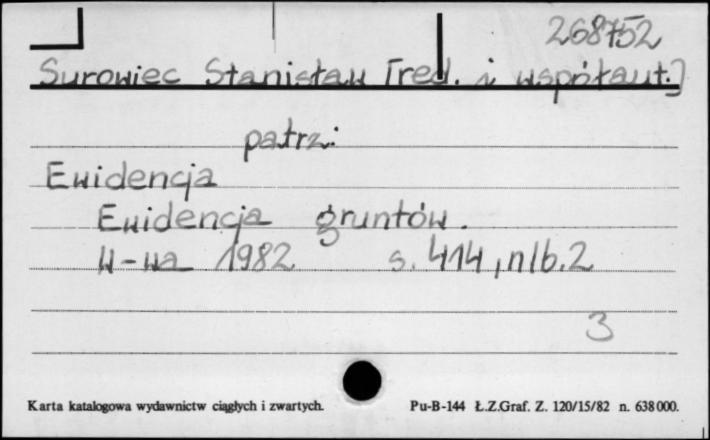 268752
Surowiec Stanisław [red. i współaut.]
patrz:
Ewidencja
Ewidencja gruntów.
W-wa 1982 s. 414, nlb. 2
3
Karta katalogowa wydawnictw ciągłych i zwartych. Pu-B-144 Ł.Z.Graf. Z. 120/15/82 n. 638000.